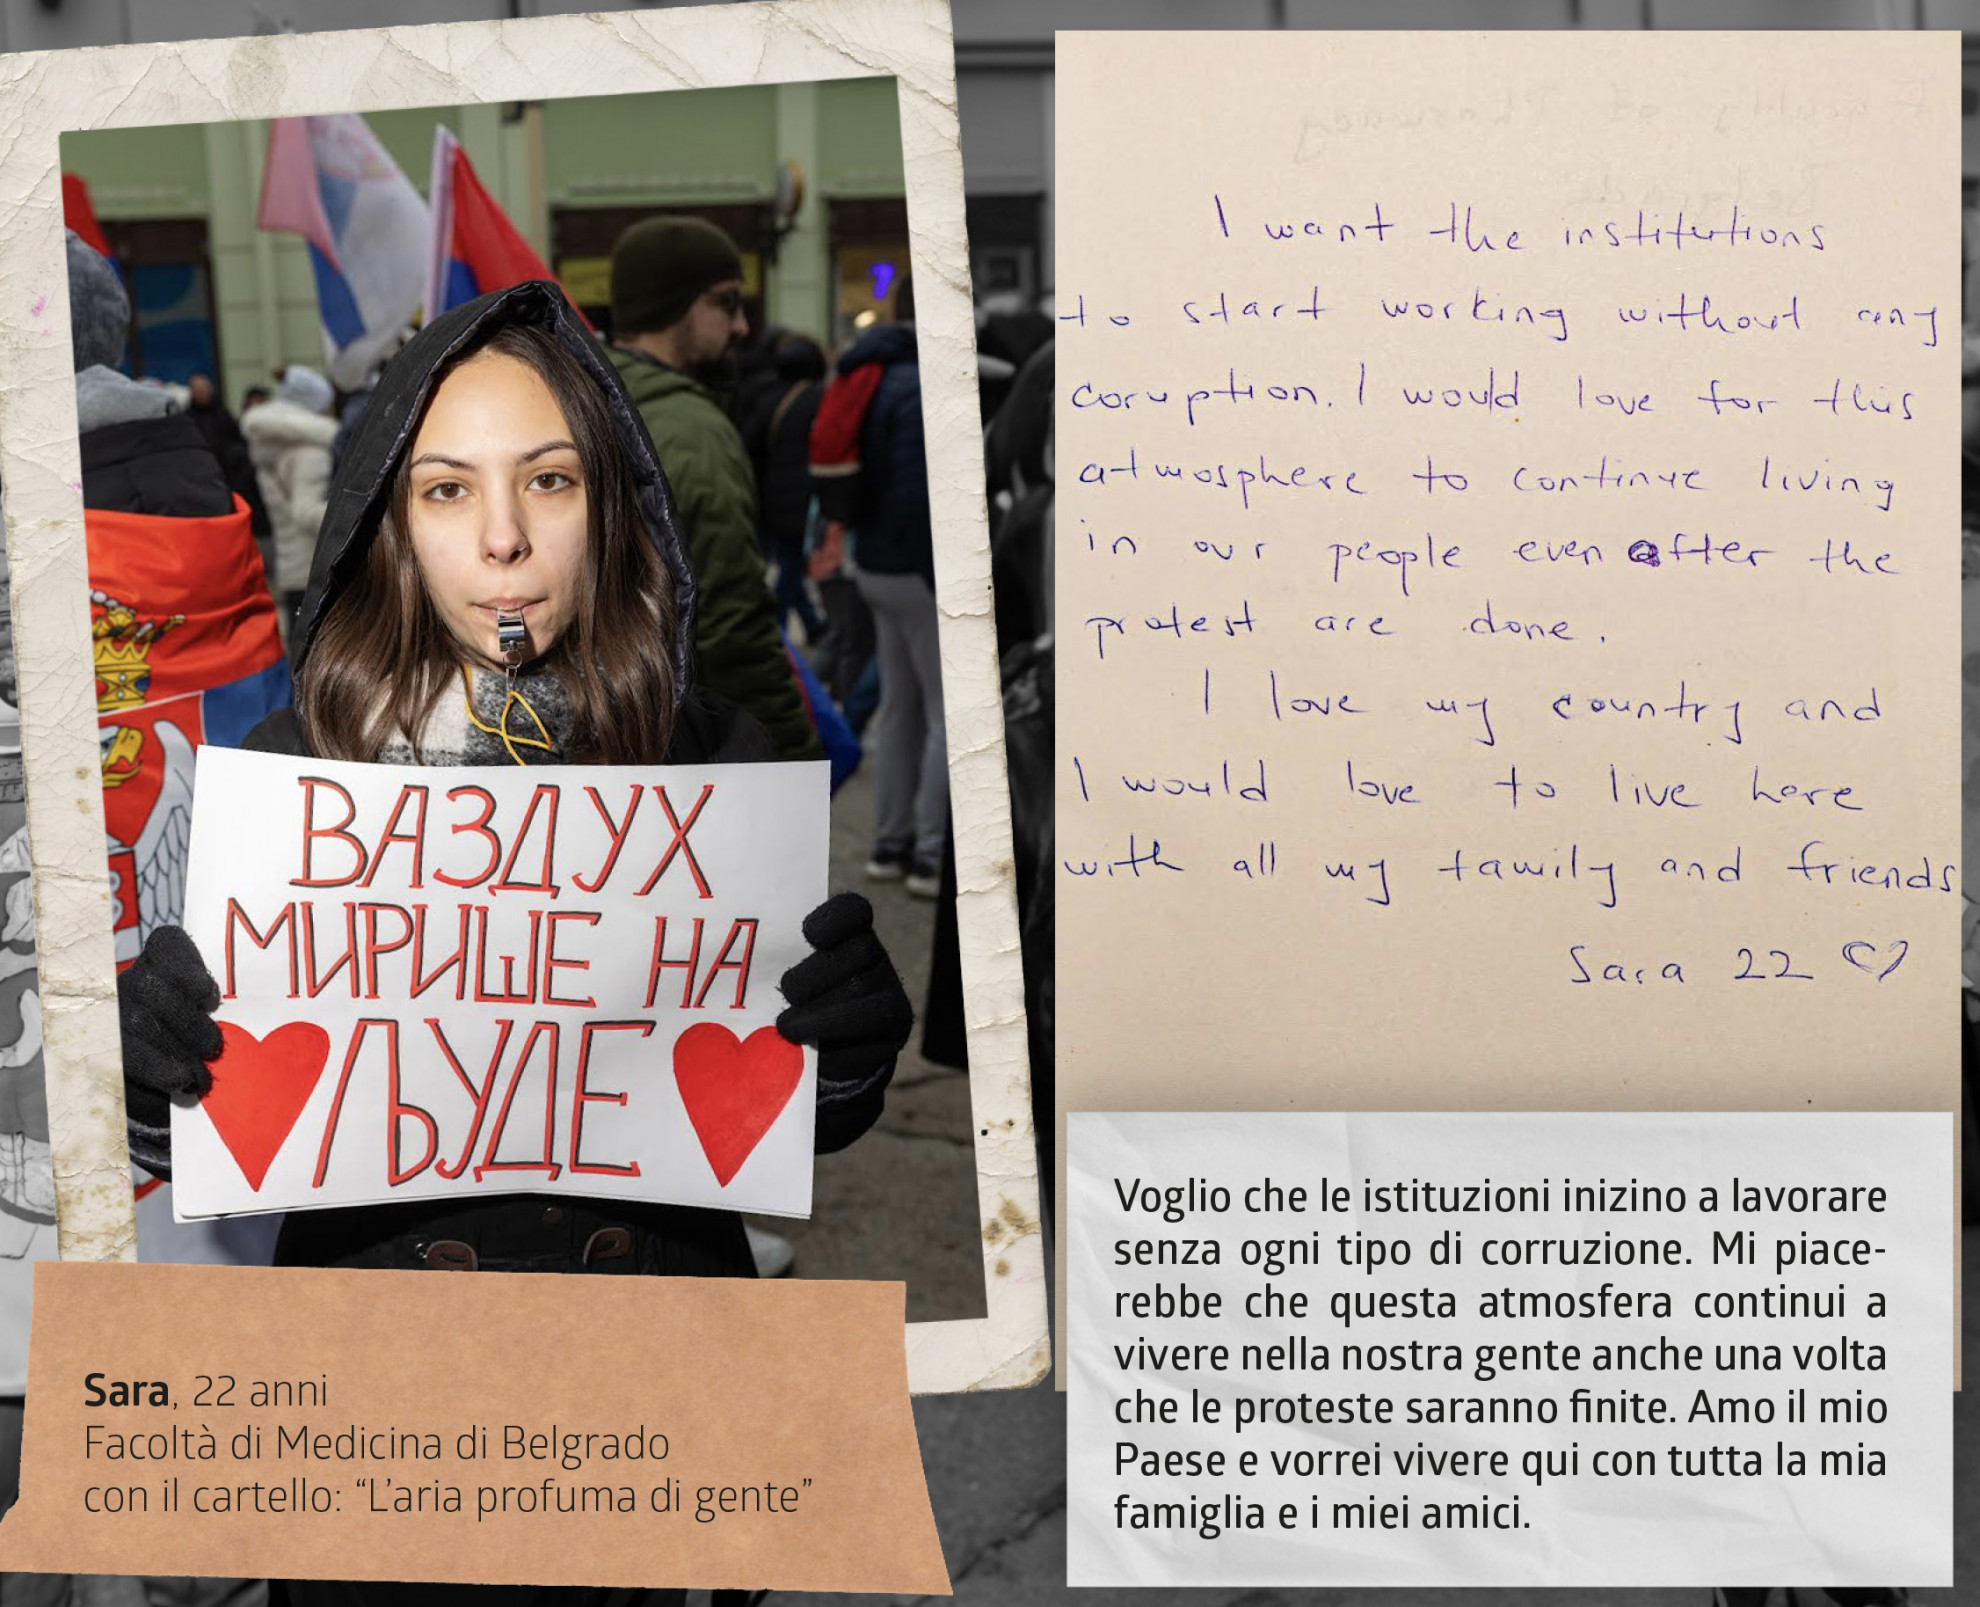 ВАЗДУХ
МИРИШЕ НА
ЉУДЕ
Sara, 22 anni
Facoltà di Medicina di Belgrado
con il cartello: “L’aria profuma di gente”
I want the institutions
to start working without any
coruption. I would love for this
atmosphere to continue living
in our people even after the
protest are done.
I love my country and
I would love to live here
with all my family and friends
Sara 22 ♡
Voglio che le istituzioni inizino a lavorare
senza ogni tipo di corruzione. Mi piace-
rebbe che questa atmosfera continui a
vivere nella nostra gente anche una volta
che le proteste saranno finite. Amo il mio
Paese e vorrei vivere qui con tutta la mia
famiglia e i miei amici.